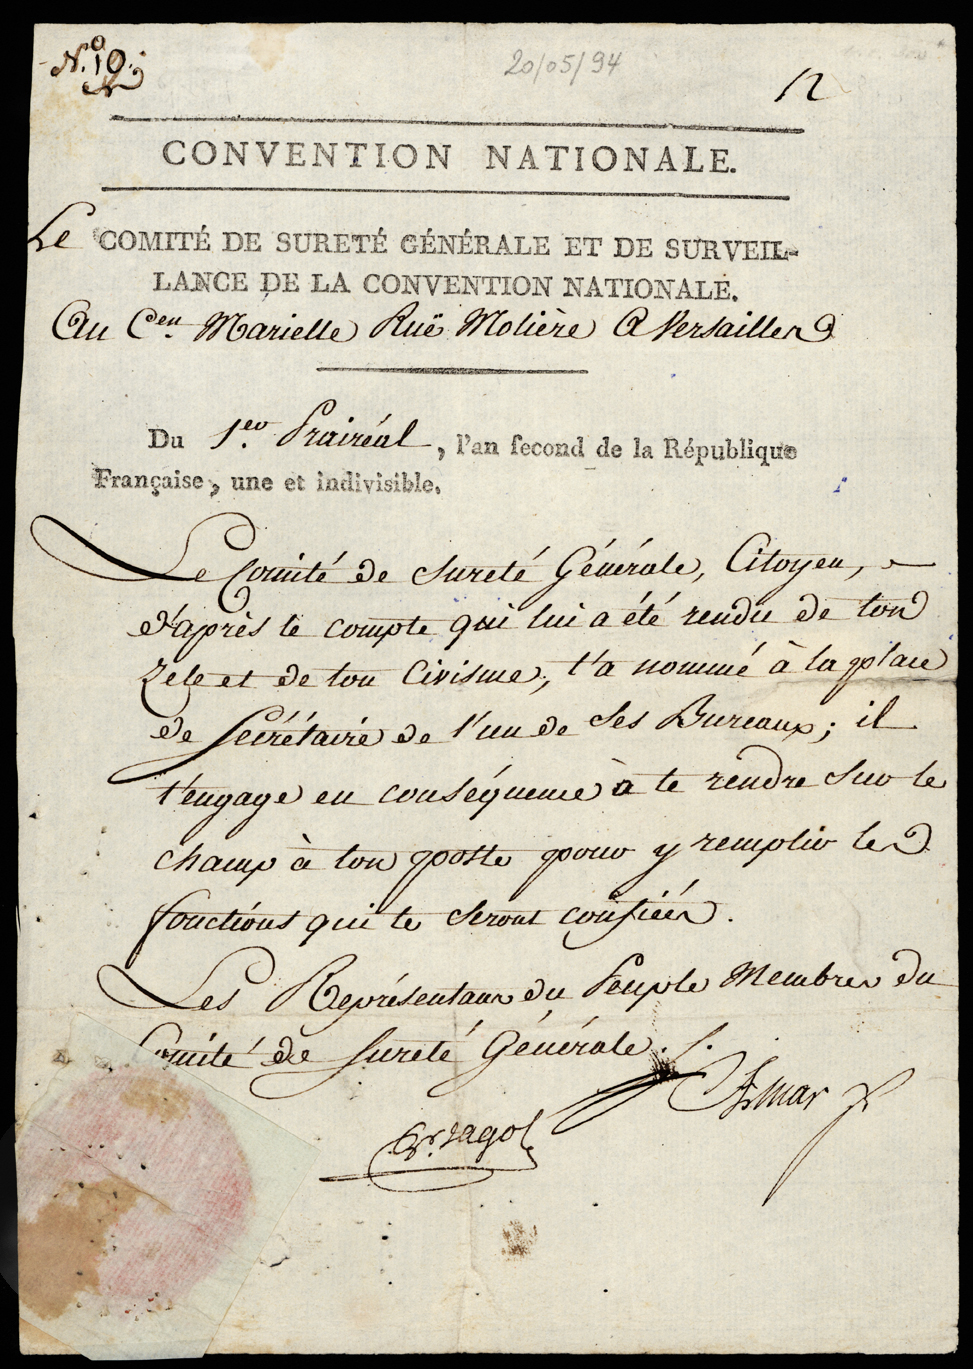 N.º 19.
20/05/94
12
CONVENTION NATIONALE.
Le COMITÉ DE SURETÉ GÉNÉRALE ET DE SURVEIL-
LANCE DE LA CONVENTION NATIONALE.
Au C.en Marielle Ruë Molière A Versailles
Du 1.er Prairéal, l'an second de la République
Française, une et indivisible.
Le Comité de Sureté Générale, Citoyen,
d'après le compte qui lui a été rendu de ton
Zele et de ton Civisme, t'a nommé à la place
de Sécrétaire de l'un de ses Bureaux; il
t'engage en conséquence à te rendre sur le
champ à ton poste pour y remplir les
fonctions qui te seront confiées.
Les Représentans du Peuple Membres du
Comité de Sureté Générale.
Amar
Gr. Jagot